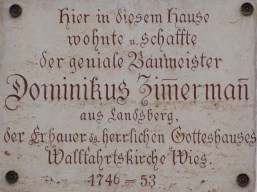 Hier in diesem Hause
wohnte u. schaffte
der geniale Baumeister
Dominikus Zim̅erman̅
aus Landsberg,
der Erbauer ds. herrlichen Gotteshauses
Wallfahrtskirche Wies.
1746 – 53.